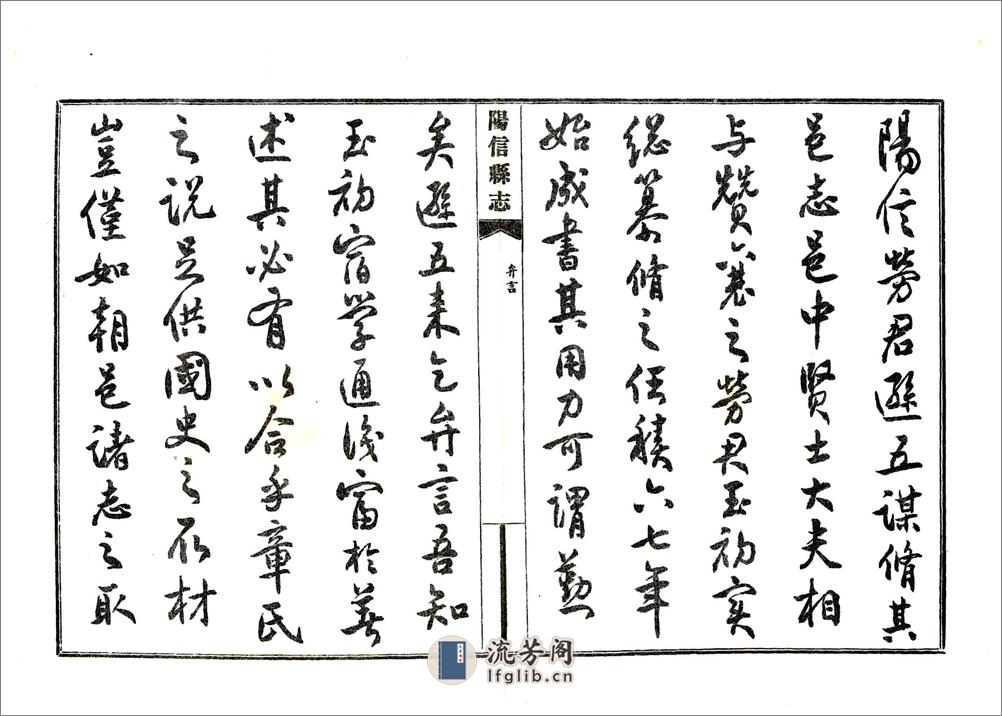 陽信勞君遜五謀脩其
邑志邑中賢士大夫相
与贊襄之勞君玉初实
總纂脩之任積六七年
始成書其用力可謂勤
陽信縣志
弁言
矣遜五来乞弁言吾知
玉初宿學通識富於著
述其必有以合乎章氏
之說足供國史之取材
豈僅如朝邑諸志之取
流芳阁
lfglib.cn